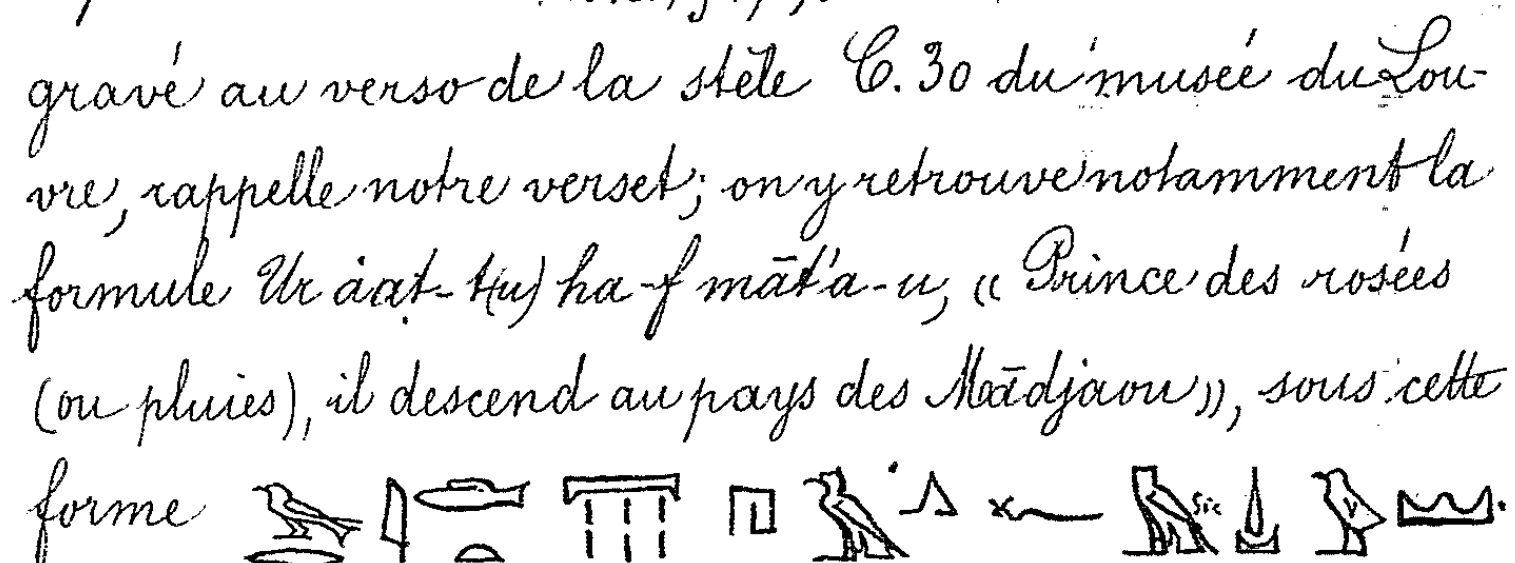 gravé au verso de la stèle C. 30 du musée du Lou-
vre, rappelle notre verset; on y retrouve notamment la
formule Ur ȧat-t(u) ha-f māt'a-u, « Prince des rosées
(ou pluies), il descend au pays des Mādjaou », sous cette
forme 𓅨𓂋𓇋𓆛𓏏𓇲𓉔𓄿𓂻𓆑𓅓 sic 𓍑𓅱𓈉.